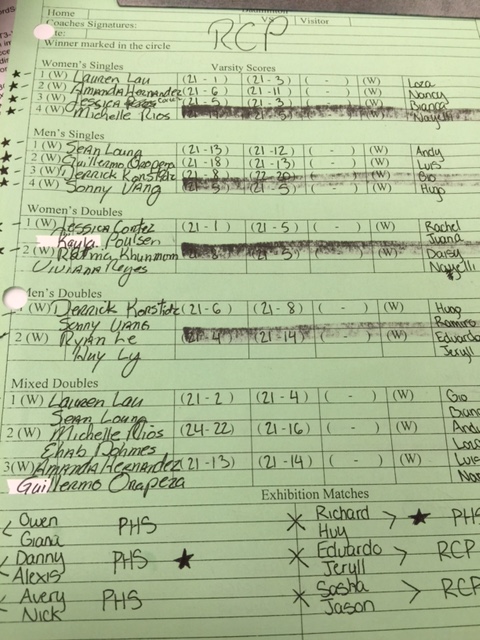 Home
Coaches Signatures: VS Visitor
RCP
Winner marked in the circle
Women's Singles Varsity Scores
1 (W) Lauren Lau (21 - 1) (21 - 3) ( - ) (W) Loza
2 (W) Amanda Hernandez (21 - 6) (21 - 11) ( - ) (W) Nancy
3 (W) Jessica (21 - 5) (21 - 3) ( - ) (W) Bianca
4 (W) Michelle Rios (W) Nayelli
Men's Singles
1 (W) Sean Loung (21 - 13) (21 - 12) ( - ) (W) Andy
2 (W) Guillermo Oropeza (21 - 18) (21 - 13) ( - ) (W) Luis
3 (W) Derrick Konstidz (21 - 8) (22 - 20) ( - ) (W) Gio
4 (W) Sonny Vang (21 - 5) (21 - 5) ( - ) (W) Hugo
Women's Doubles
1 (W) Jessica Cortez (21 - 1) (21 - 5) ( - ) (W) Rachel
Kayla Poulsen Juana
2 (W) Rahma Khunmom (W) Daisy
Viviana Reyes Nayelli
Men's Doubles
(W) Derrick Konstidz (21 - 6) (21 - 8) ( - ) (W) Hugo
Sonny Vang Ramiro
2 (W) Ryan Le (21 - 4) (21 - 14) ( - ) (W) Eduardo
Huy Ly Jeryll
Mixed Doubles
1 (W) Lauren Lau (21 - 2) (21 - 4) ( - ) (W) Gio
Sean Loung
2 (W) Michelle Rios (24 - 22) (21 - 16) ( - ) (W) Andy
Ehab Dahmes
3 (W) Amanda Hernandez (21 - 13) (21 - 14) ( - ) (W) Luis
Guillermo Orapeza
Exhibition Matches
Owen PHS
Giana
Danny PHS ★
Alexis
Avery PHS
Nick
X Richard > ★ PHS
Huy
X Eduardo > RCP
Jeryll
X Sasha > RCP
Jason